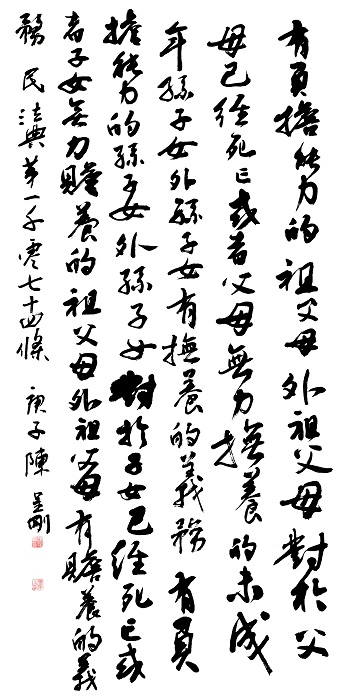 有負擔能力的祖父母外祖父母對於父
母已經死亡或者父母無力撫養的未成
年孫子女外孫子女有撫養的義務有負
擔能力的孫子女外孫子女對於子女已經死亡或
者子女無力贍養的祖父母外祖父母有贍養的義
務 民法典第一千零七十四條 庚子陳